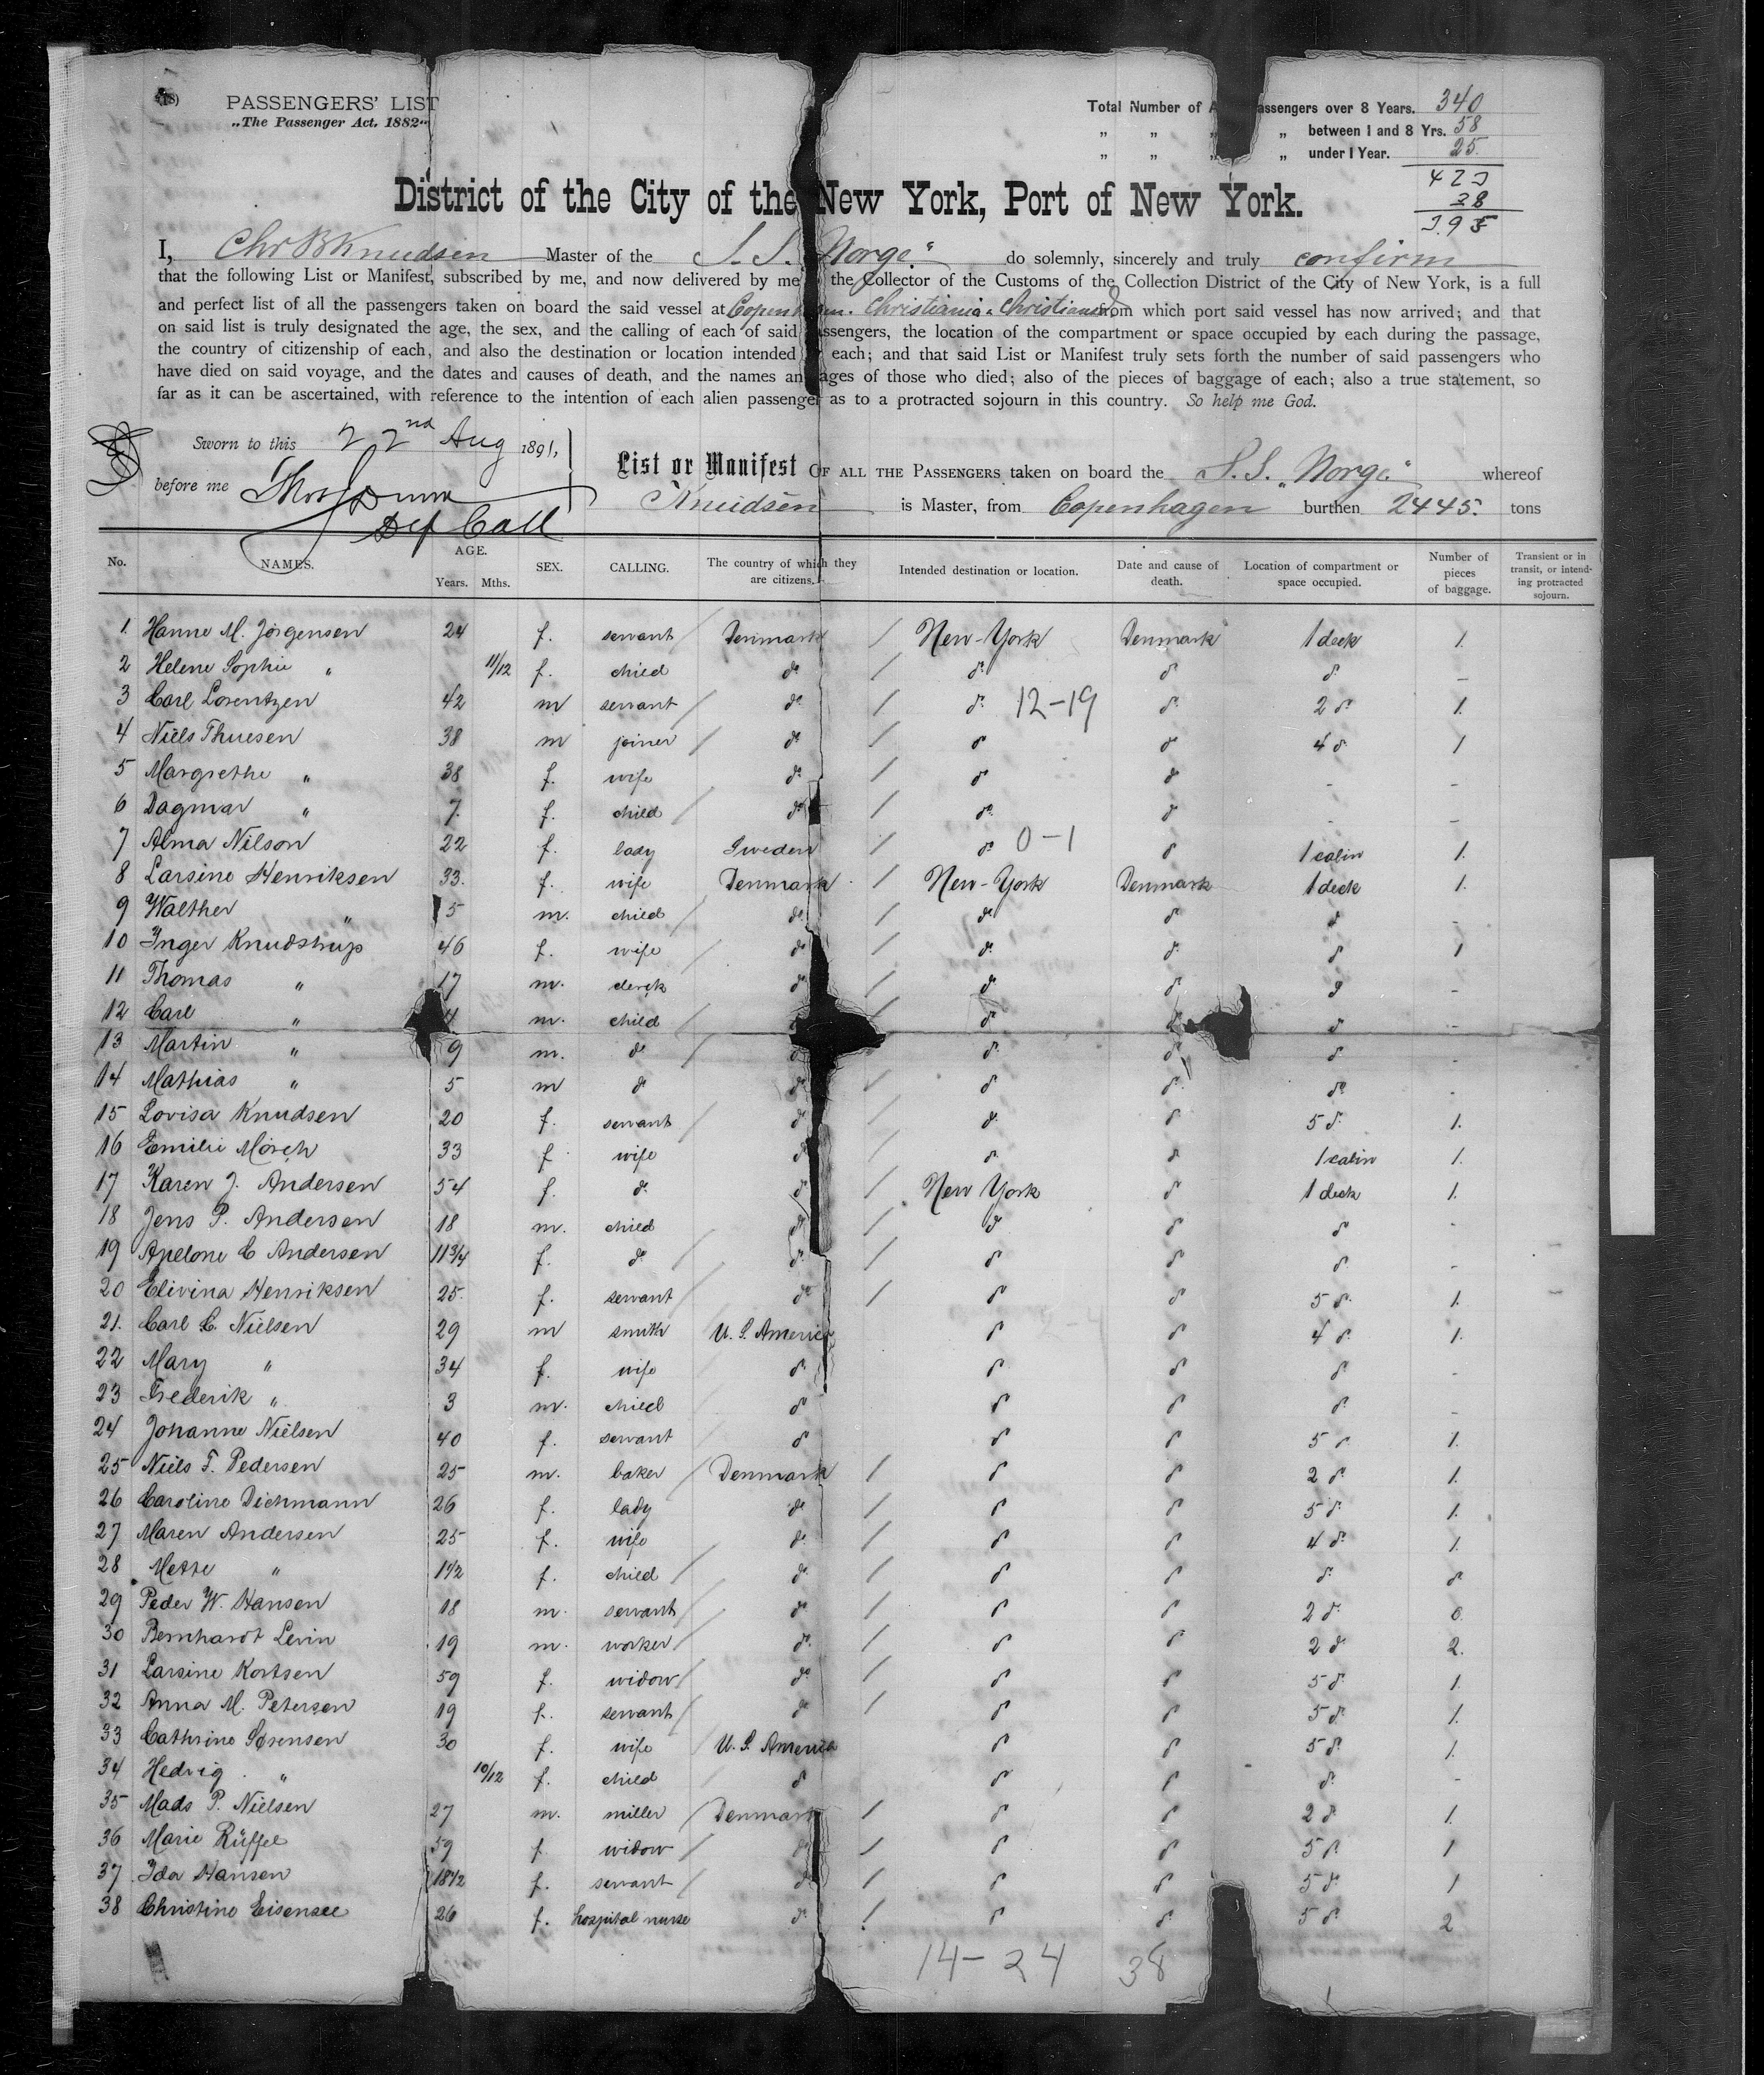 PASSENGERS' LIST
„The Passenger Act. 1882"
Total Number of Passengers over 8 Years. 340
„ „ „ „ between 1 and 8 Yrs. 58
„ „ „ „ under 1 Year. 25.
423
28
395
District of the City of the New York, Port of New York.
I, Chr B Knudsen Master of the S. S. Norge" do solemnly, sincerely and truly confirm
that the following List or Manifest, subscribed by me, and now delivered by me the Collector of the Customs of the Collection District of the City of New York, is a full
and perfect list of all the passengers taken on board the said vessel at Copenhagen. Christiania. from which port said vessel has now arrived; and that
on said list is truly designated the age, the sex, and the calling of each of said passengers, the location of the compartment or space occupied by each during the passage,
the country of citizenship of each, and also the destination or location intended each; and that said List or Manifest truly sets forth the number of said passengers who
have died on said voyage, and the dates and causes of death, and the names and ages of those who died; also of the pieces of baggage of each; also a true statement, so
far as it can be ascertained, with reference to the intention of each alien passenger as to a protracted sojourn in this country. So help me God.
Sworn to this 22nd Aug 1891,
before me
List or Manifest OF ALL THE PASSENGERS taken on board the S. S. „Norge" whereof
Knudsen is Master, from Copenhagen burthen 2445. tons
No. NAMES. AGE. Years. Mths. SEX. CALLING. The country of which they are citizens. Intended destination or location. Date and cause of death. Location of compartment or space occupied. Number of pieces of baggage. Transient or in transit, or intending protracted sojourn.
1. Hanne M. Jørgensen 24 f. servant / Denmark / New-York Denmark 1 deck 1.
2 Helene Sophie „ 11/12 f. child do / do do do -
3 Carl Lorentzen 42 m servant / do / do 12-19 do 2 do 1.
4 Niels Thuesen 38 m joiner / do / do do 4 do 1
5 Margrethe „ 38 f. wife do / do do - -
6 Dagmar „ 7. f. child / do / do do - -
7 Alma Nilson 22 f. lady Sweden / do 0-1 do 1 cabin 1.
8 Larsine Henriksen 33. f. wife Denmark / New-York Denmark 1 deck 1.
9 Walther „ 5 m. child / do / do do do -
10 Inger Knudstrup 46 f. wife do / do do do 1
11 Thomas „ 17 m. clerk do / do do do -
12 Carl „ m. child / / do do -
13 Martin „ 9 m. do / do do do do -
14 Mathias „ 5 m do do / do do do -
15 Lovisa Knudsen 20 f. servant / do / do do 5 do 1.
16 Emilie Mörch 33 f wife do / do do 1 cabin 1.
17 Karen J. Andersen 54 f. do do / New York do 1 deck 1.
18 Jens P. Andersen 18 m. child do / do do do -
19 C Andersen 11 3/4 f. do / do / do do do -
20 Elivina Henriksen 25. f. servant / do / do do 5 do 1.
21. Carl C. Nielsen 29 m smith U. S. America do do 4 do 1.
22 Mary „ 34 f. wife do do do do -
23 Frederik „ 3 m. child do do do do -
24 Johanne Nielsen 40 f. servant do do do 5 do 1.
25 Niels T. Pedersen 25 m. baker / Denmark / do do 2 do 1.
26 Caroline Dichmann 26 f. lady do / do do 5 do 1.
27 Maren Andersen 25 f. wife do / do do 4 do 1.
28 Mette „ 1 1/2 f. child / do / do do do do
29 Peder W. Hansen 18 m. servant / do / do do 2 do 0.
30 Bernhardt Levin 19 m. worker / do / do do 2 do 2.
31 Larsine Kortsen 59 f. widow / do / do do 5 do 1.
32 Anna M. Petersen 19 f. servant / do / do do 5 do 1.
33 Cathrine Sørensen 30 f. wife U. S. America do do 5 do 1.
34 Hedvig „ 10/12 f. child do do do do -
35 Mads P. Nielsen 27 m. miller / Denmark / do do 2 do 1.
36 Marie Rüffel 59 f. widow / do / do do 5 do 1
37 Ida Hansen 18 1/2 f. servant / do / do do 5 do 1
38 Christine Eisensee 26 f. hospital nurse do / do do 5 do 2
14-24 38